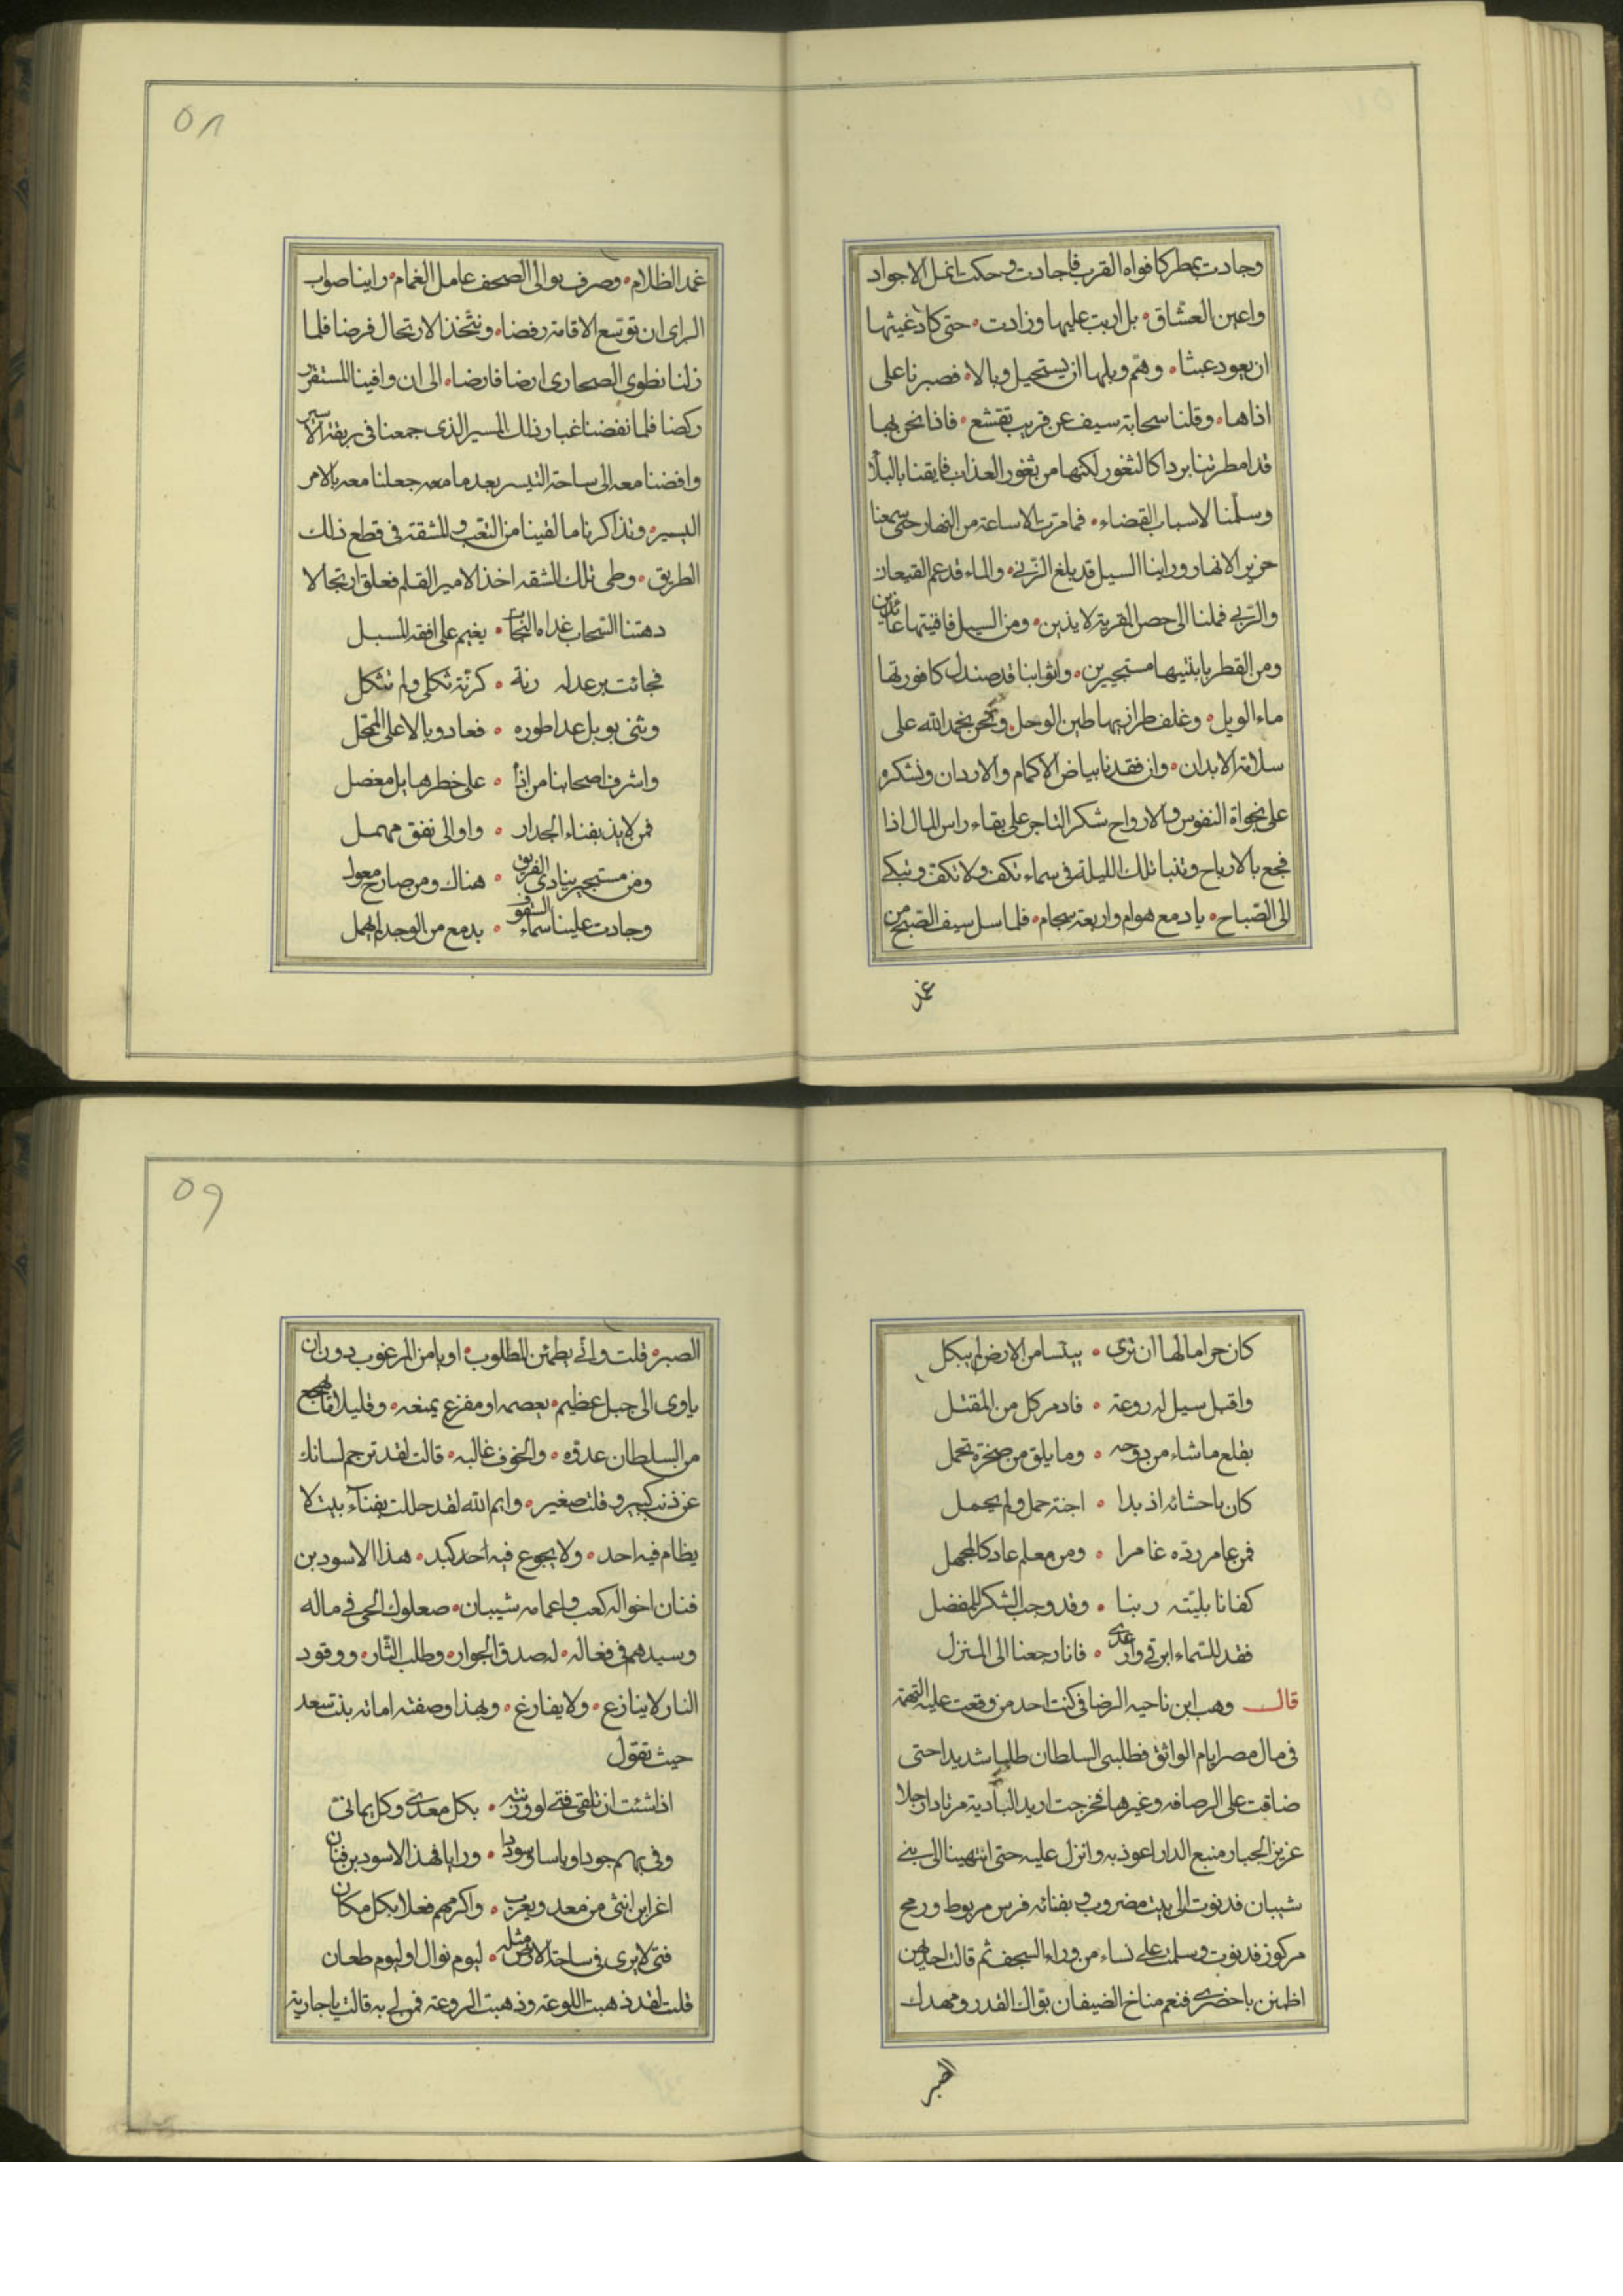 وجادت بمطر كافواه القرب فاجادت وحكت انمل الاجواد
واعين العشاق ۰ بل اربت عليها وزادت ۰ حتى كاد غيثها
ان يعود عيثا ۰ وهم وبلها ان يستحيل وبالا ۰ فصبرنا على
اذاها ۰ وقلنا سحابة سيف عن قريب تقشع ۰ فاذا نحن بها
قد امطرتنا بردا كالثغور لكنها من ثغور العذاب فايقنا بالبلا
وسلمنا لاسباب القضاء ۰ فما مرت الا ساعة من النهار حتى سمعنا
خرير الانهار وراينا السيل قد بلغ الزبى ۰ والماء قد عم القيعان
والربى فملنا الى حصن القرية لايذين ۰ ومن السيل فافنيتها عائذين
ومن القطر بابنيتها مستجيرين ۰ واثوابنا قد صندل كافوريها
ماء الويل ۰ وغلف طرازيها طين الوحل ۰ ونحن نحمد الله على
سلامة الابدان ۰ وان فقدنا بياض الاكمام والاردان ونشكر
على نجواة النفوس والارواح شكر التاجر على بقاء راس المال اذا
فجع بالارباح وبتنا تلك الليلة فى سماء تكف ولا تكف وتبكى
الى الصباح ۰ بادمع هوام واربعة سجام ۰ فلما سل سيف الصبح من
غمد
٥٨
غمد الظلام ۰ وصرف بوالى الصحف عامل الغمام ۰ راينا صواب
الراى ان توسع الاقامة رفضا ۰ ونتخذ الارتحال فرضا فلما
زلنا نطوى الصحارى ارضا فارضا ۰ الى ان وافينا المستقر
ركضا فلما نفضنا غبار ذلك المسير الذى جمعنا فى ربقة الاسير
وافضنا معه الى ساحة التيسر بعدما جعلنا معه بالامر
اليسير ۰ وتذاكرنا ما لقينا من التعب والمشقة فى قطع ذلك
الطريق ۰ وطى تلك الشقة اخذ الامير القلم فعلق ارتجالا
دهتنا السحاب غداه النجاب ۰ يغيم على افقه المسبل
فجائت برعد له رنة ۰ كرنة ثكلى ولم تثكل
وثنى بوبل عدا طوره ۰ فعاد وبالا على الممحل
واشرف اصحابنا من اذا ۰ على خطر هايل معضل
فمن لايذ بفناء الجدار ۰ واو الى نفق مهمل
ومن مستجير ينادى الغريق ۰ هناك ومن صارخ معول
وجادت علينا سماء السقوف ۰ بدمع من الوجد لم يهمل
كان حراما لها ان ترى ۰ يبسا من الارض لم يبلل
واقبل سيل له روعة ۰ فادبر كل من المقبل
يقلع ما شاء من دوحه ۰ وما يلق من صخرة تحمل
كان باحشائه اذ بدا ۰ اجنة حمل ولم يحمل
فمن عامر رده غامرا ۰ ومن معلم عاد كالمجهل
كفانا بليته ربنا ۰ وقد وجب الشكر للمفضل
فقد للسماء ابرقى وارعدى ۰ فانا رجعنا الى المنزل
قال وهب ابن ناحيه الرضافى كنت احد من وقعت عليه التهمة
فى مال مصر ايام الواثق فطلبنى السلطان طلبا شديدا حتى
ضاقت على الرصافه وغيرها فخرجت اريد البادية مرتادا رجلا
عزيز الجبار منيع الدار اعوذ به وانزل عليه حتى انتهينا الى بنى
شيبان فدنوت الى بيت مضروب وبفنائه فرس مربوط ورمح
مركوز فدنوت وسلمت على نساء من وراء السجف ثم قالت احديهن
اظمئن باخضرى فنعم مناخ الضيفان بوالك القدر ومهدك
الصبر
٥٩
الصبر ۰ قلت وانى يطمئن المطلوب ۰ او يامن المرغوب دون ان
ياوى الى جبل عظيم ۰ يعصمه او مفزع يمنعه ۰ وقليلا فاجهجع
من السلطان عدوه ۰ والخوف غالبه ۰ قالت لقد ترجم لسانك
عن ذنب كبير وقلت صغير ۰ وايم الله لقد حللت بفناء بيت لا
يظام فيه احد ۰ ولا يجوع فيه احد كبد ۰ هذا الاسود بن
فنان اخواله كعب واعمامه شيبان ۰ صعلوك الحى فى ماله
وسيدهم فى فعاله ۰ له صدق الجوار ۰ وطلب الثار ۰ ووقود
النار لا ينازع ۰ ولا يفارغ ۰ وبهذا وصفته امانه بنت سعد
حيث تقول
اذا شئت ان تلقى فتى لو وزنته ۰ بكل معدى وكل يمانى
وفى بهم جودا وباسا وسوددا ۰ ورايا فهذا الاسود بن فنان
اغر ابن انثى من معد ويعرب ۰ واكرمهم فعلا بكل مكان
فتى لا يرى فى ساحة الارض مثله ۰ ليوم نوال او ليوم طعان
قلت لقد ذهبت اللوعة وذهبت الروعة فمن لى به قالت يا جارية